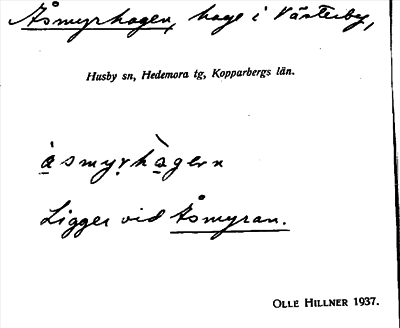 Åsmyrhagen, hage i Västerby,
Husby sn, Hedemora tg, Kopparbergs län.
åsmyṛhàgern
Ligger vid Åsmyran.
OLLE HILLNER 1937.